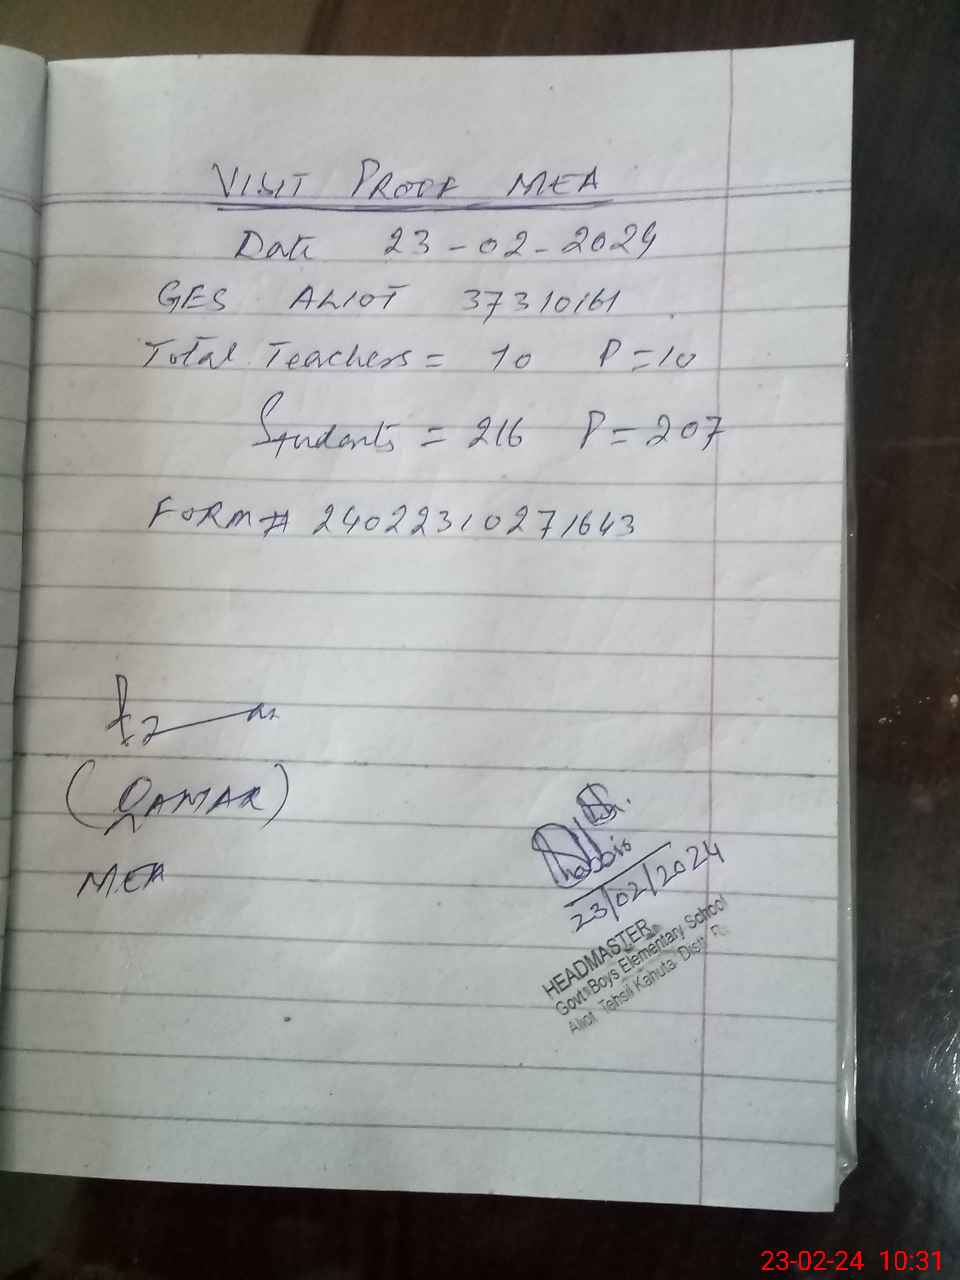 VISIT PROOF MEA
Date 23-02-2024
GES ALIOT 37310161
Total Teachers = 10 P=10
Students = 216 P=207
FORM# 24022310271643
(QAMAR)
MEA
23/02/2024
HEADMASTER
Govt Boys Elementary School
Aliot Tehsil Kahuta Distt R
23-02-24 10:31